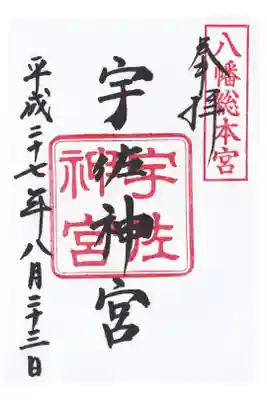 八幡総本宮
奉拝
宇佐神宮
宇佐
神宮
平成二十七年八月二十三日